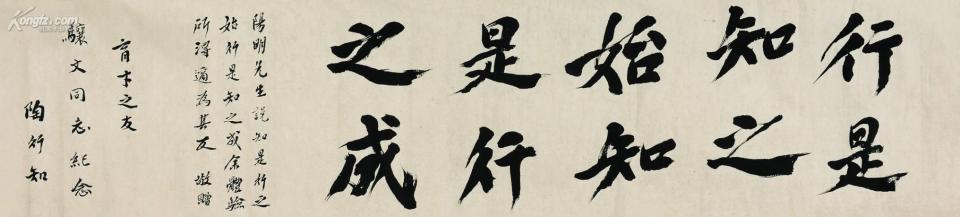 行是
知之
始知
是行
之成
陽明先生說知是行之
始行是知之成余體驗
所得適為其反 敬贈
育才之友
驤文同志紀念
陶行知
Kongfz.com